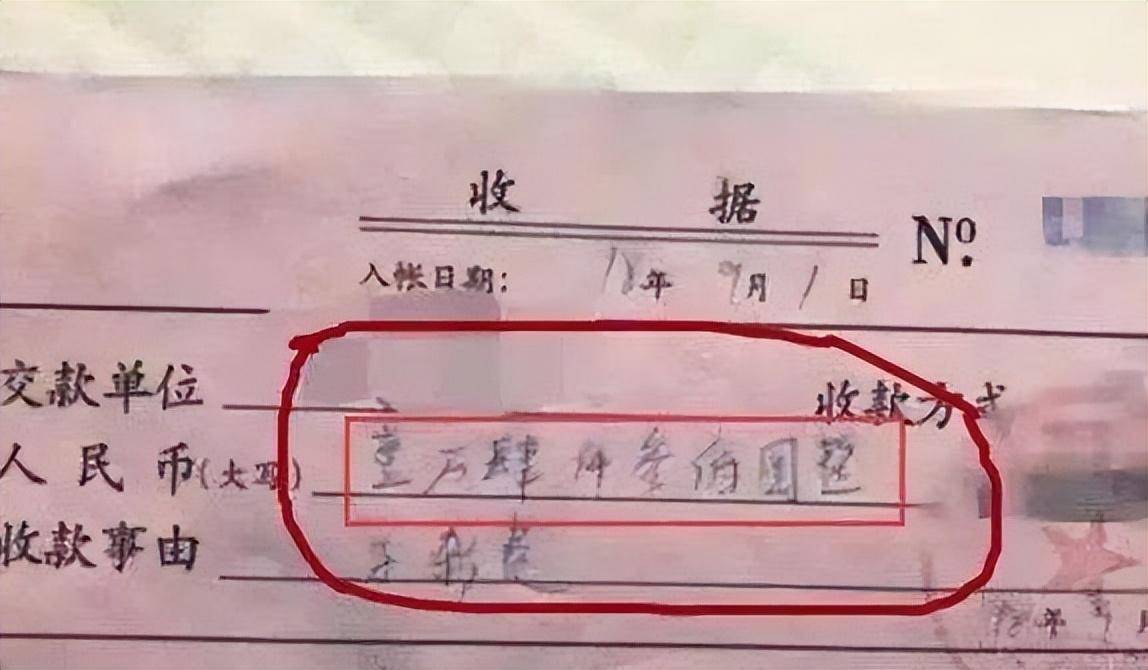 收 据
No.
入帐日期： 18年 9月 1日
交款单位 收款方式
人民币(大写) 壹万肆仟叁佰圆整
收款事由
年 月